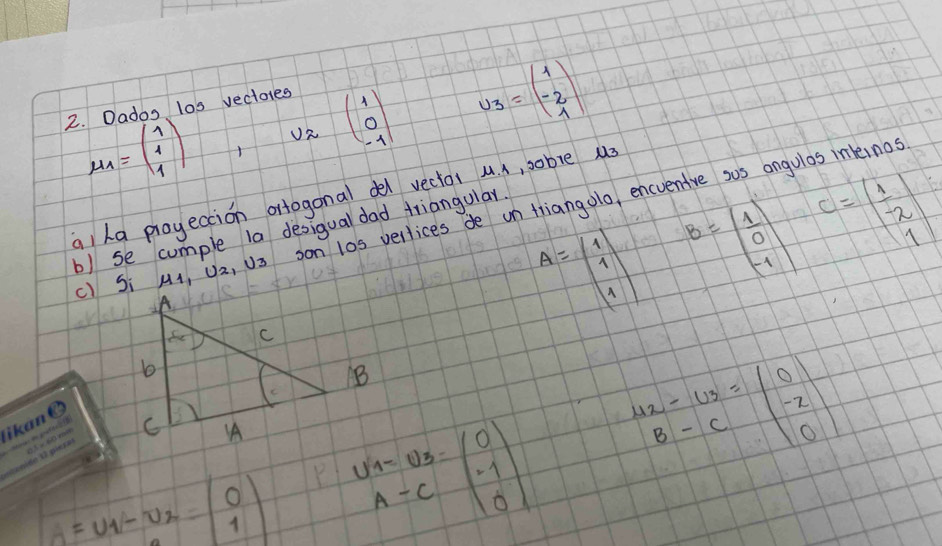 2. Dados los vectores
μ1 = (1 1 1) , υ2 (1 0 -1) υ3 = (1 -2 1)
a) La proyección ortogonal del vector μ1, sobre μ3
b) se cumple la desigualdad triangular.
c) Si μ1, υ2, υ3 son los vertices de un triangulo, encuentre sus angulos internos.
A = (1 1 1) B = (1 0 -1) C = (1 -2 1)
A
b c
C A B
μ2 - υ3 = (0 -2 0)
B - C
υ1 - υ3 = (0 -1 0)
A - C
= υ1 - υ2 = (0 1
likan